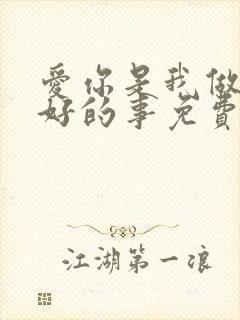 爱你是我做
好的事免費
江湖第一浪